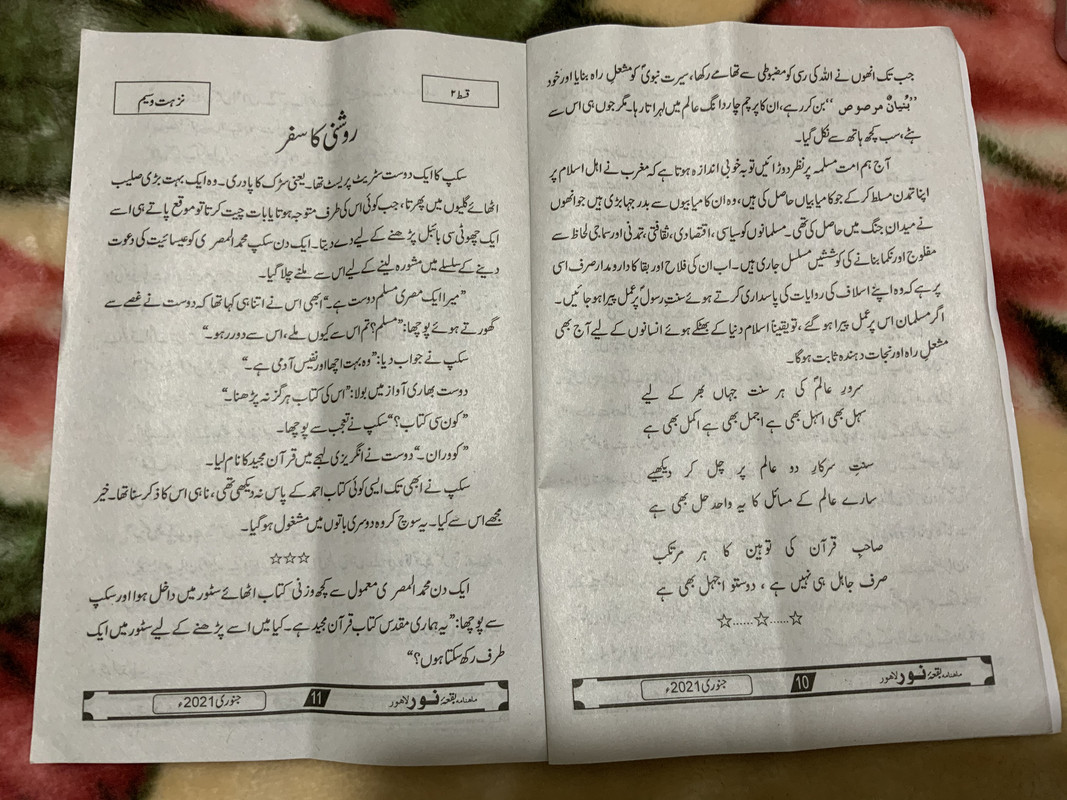 جب تک انھوں نے اللہ کی رسی کو مضبوطی سے تھامے رکھا، سیرت نبویؐ کو مشعلِ راہ بنایا اور خود
”بُنیانٌ مرصوص“ بن کر رہے، ان کا پرچم چار دانگ عالم میں لہراتا رہا۔ مگر جوں ہی اس سے
ہٹے، سب کچھ ہاتھ سے نکل گیا۔
آج ہم امت مسلمہ پر نظر دوڑائیں تو بہ خوبی اندازہ ہوتا ہے کہ مغرب نے اہل اسلام پر
اپنا تمدن مسلط کر کے جو کامیابیاں حاصل کی ہیں، وہ ان کامیابیوں سے بدرجہا بڑی ہیں جو انھوں
نے میدان جنگ میں حاصل کی تھی۔ مسلمانوں کو سیاسی، اقتصادی، ثقافتی، تمدنی اور سماجی لحاظ سے
مفلوج اور نکما بنانے کی کوششیں مسلسل جاری ہیں۔ اب ان کی فلاح اور بقا کا دارومدار صرف اسی
پر ہے کہ وہ اپنے اسلاف کی روایات کی پاسداری کرتے ہوئے سنتِ رسولؐ پر عمل پیرا ہو جائیں۔
اگر مسلمان اس پر عمل پیرا ہو گئے، تو یقیناً اسلام دنیا کے بھٹکے ہوئے انسانوں کے لیے آج بھی
مشعلِ راہ اور نجات دہندہ ثابت ہوگا۔
سرورِ عالمؐ کی ہر سنت جہاں بھر کے لیے
سہل بھی اسہل بھی ہے اجمل بھی ہے اکمل بھی ہے
سنتِ سرکارِ دو عالم پر چل کر دیکھیے
سارے عالم کے مسائل کا یہ واحد حل بھی ہے
صاحبِ قرآن کی توہین کا ہر مرتکب
صرف جاہل ہی نہیں ہے ، دوستو اجہل بھی ہے
☆......☆......☆
ماہنامہ بقعۂ نور لاہور 10 جنوری 2021ء
قسط ۲
نزہت وسیم
روشنی کا سفر
سکپ کا ایک دوست سٹریٹ پریسٹ تھا۔ یعنی سڑک کا پادری۔ وہ ایک بہت بڑی صلیب
اٹھائے گلیوں میں پھرتا، جب کوئی اس کی طرف متوجہ ہوتا یا بات چیت کرتا تو موقع پاتے ہی اسے
ایک چھوٹی سی بائبل پڑھنے کے لیے دے دیتا۔ ایک دن سکپ محمد المصری کو عیسائیت کی دعوت
دینے کے سلسلے میں مشورہ لینے کے لیے اس سے ملنے چلا گیا۔
”میرا ایک مصری مسلم دوست ہے۔“ ابھی اس نے اتنا ہی کہا تھا کہ دوست نے غصے سے
گھورتے ہوئے پوچھا: ”مسلم؟ تم اس سے کیوں ملے، اس سے دور رہو۔“
سکپ نے جواب دیا: ”وہ بہت اچھا اور نفیس آدمی ہے۔“
دوست بھاری آواز میں بولا: ”اس کی کتاب ہرگز نہ پڑھنا۔“
”کون سی کتاب؟“ سکپ نے تعجب سے پوچھا۔
”کووران۔“ دوست نے انگریزی لہجے میں قرآن مجید کا نام لیا۔
سکپ نے ابھی تک ایسی کوئی کتاب احمد کے پاس نہ دیکھی تھی، نا ہی اس کا ذکر سنا تھا۔ خیر
مجھے اس سے کیا۔ یہ سوچ کر وہ دوسری باتوں میں مشغول ہو گیا۔
☆☆☆
ایک دن محمد المصری معمول سے کچھ وزنی کتاب اٹھائے سٹور میں داخل ہوا اور سکپ
سے پوچھا: ”یہ ہماری مقدس کتاب قرآن مجید ہے۔ کیا میں اسے پڑھنے کے لیے سٹور میں ایک
طرف رکھ سکتا ہوں؟“
ماہنامہ بقعۂ نور لاہور 11 جنوری 2021ء